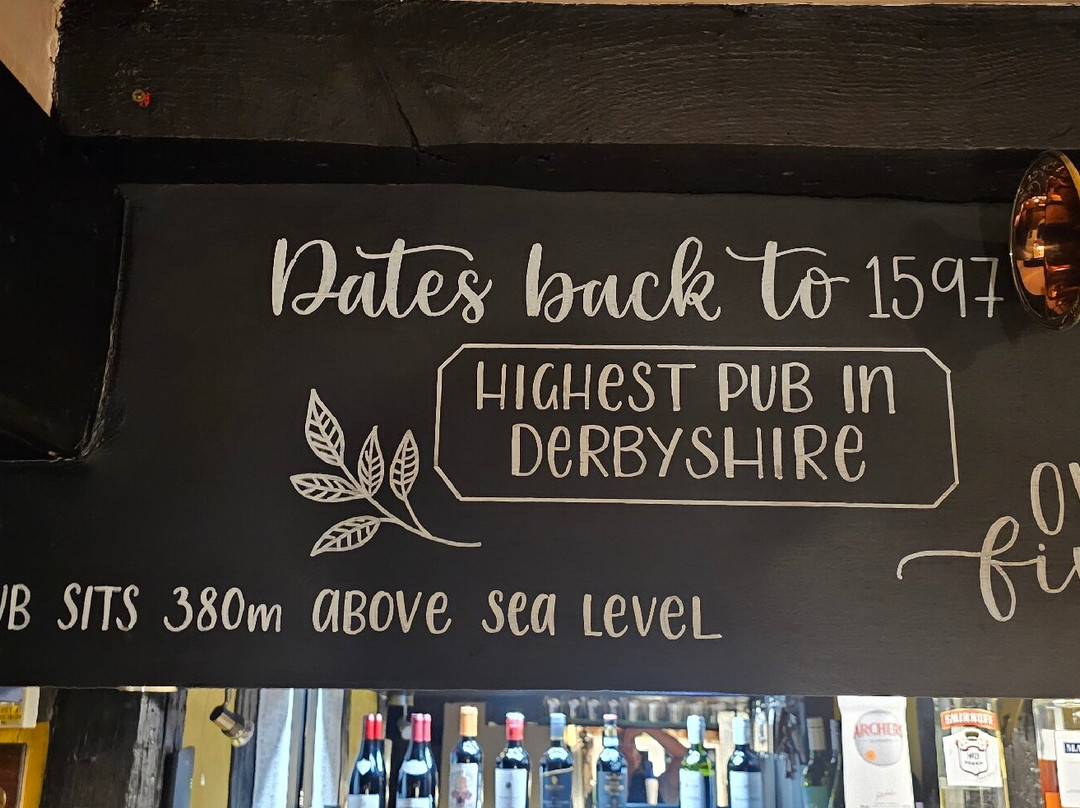 Dates back to 1597
HIGHEST PUB IN
DERBYSHIRE
SITS 380m ABOVE SEA LEVEL
ARCHERS
SMIRNOFF